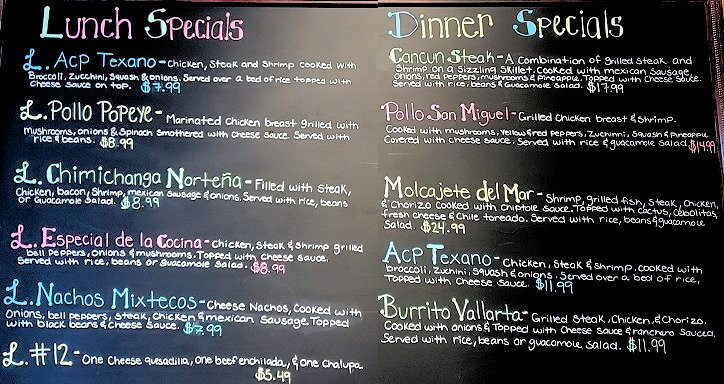 Lunch Specials
L. Acp Texano - Chicken, Steak and Shrimp cooked with
Broccoli, Zucchini, Squash & onions. Served over a bed of rice topped with
Cheese Sauce on top. $7.99
L. Pollo Popeye - Marinated Chicken breast grilled with
mushrooms, onions & Spinach Smothered with Cheese Sauce. Served with
rice & beans. $8.99
L. Chimichanga Norteña - Filled with Steak,
Chicken, bacon, Shrimp, mexican Sausage & onions. Served with rice, beans
or Guacamole Salad. $8.99
L. Especial de la Cocina - Chicken, Steak & Shrimp grilled
bell Peppers, onions & mushrooms. Topped with cheese sauce.
Served with rice, beans or guacamole Salad. $8.99
L. Nachos Mixtecos - Cheese Nachos, Cooked with
Onions, bell peppers, Steak, Chicken & mexican Sausage. Topped
with black beans & Cheese Sauce. $7.99
L. #12 - One Cheese quesadilla, one beef enchilada, & one Chalupa.
$5.49
Dinner Specials
Cancun Steak - A Combination of grilled Steak and
Shrimp on a Sizzling Skillet. Cooked with mexican Sausage,
Onions, red peppers, mushrooms & Pineapple. Topped with Cheese Sauce.
Served with rice, beans & Guacamole Salad. $17.99
Pollo San Miguel - Grilled Chicken breast & Shrimp.
Cooked with mushrooms, Yellow & red Peppers, Zuchinni, Squash & Pineapple
Covered with cheese sauce. Served with rice & guacamole Salad $14.99
Molcajete del Mar - Shrimp, grilled fish, Steak, Chicken,
& Chorizo Cooked with Chiptole Sauce. Topped with cactus, Cebollitas,
fresh cheese & Chile toreado. Served with rice, beans & guacamole
Salad. $24.99
Acp Texano - Chicken, Steak & Shrimp, cooked with
broccoli, Zuchini, Squash & onions. Served over a bed of rice,
Topped with Cheese Sauce. $11.99
Burrito Vallarta - Grilled Steak, Chicken, & Chorizo.
Cooked with onions & Topped with Cheese Sauce & ranchero Sauce.
Served with rice, beans or guacamole Salad. $11.99